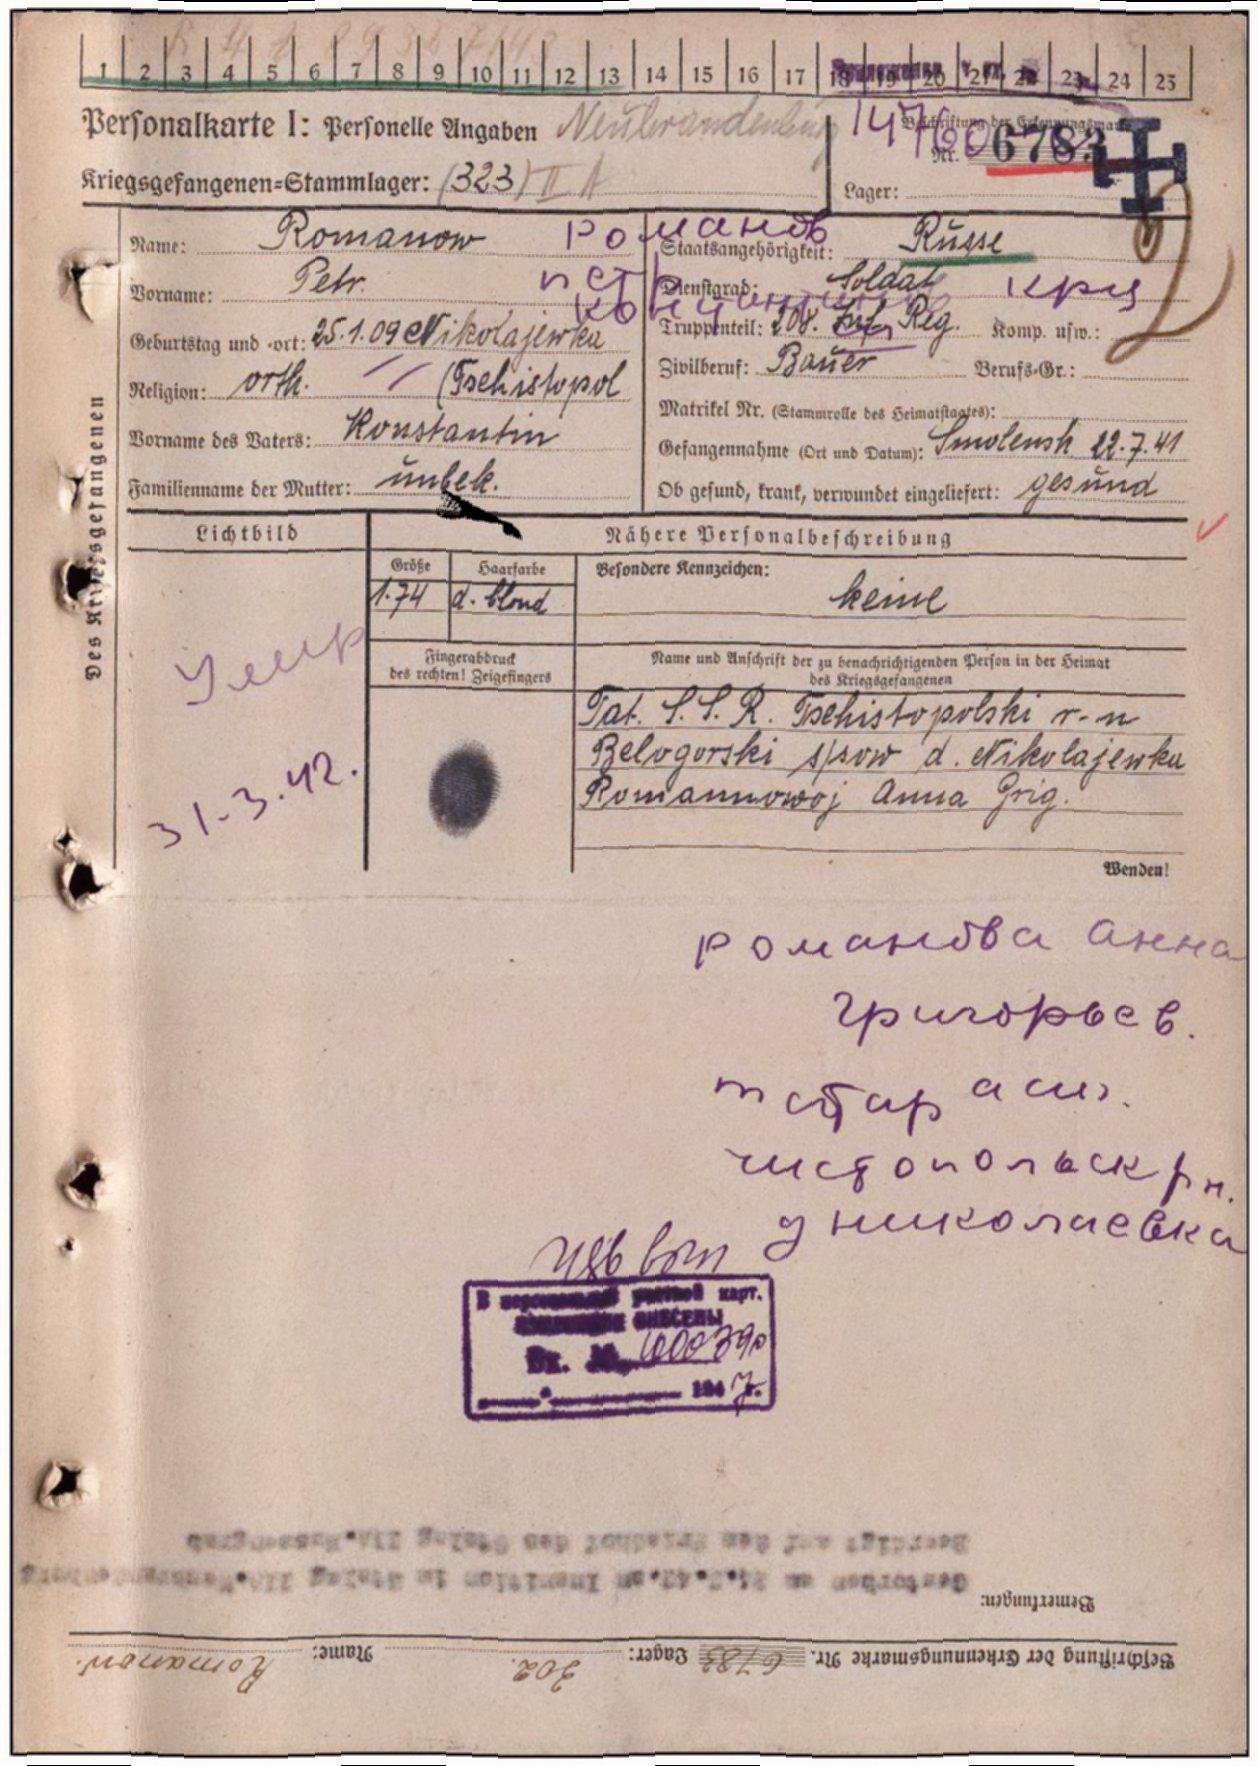 1 2 3 4 5 6 7 8 9 10 11 12 13 14 15 16 17 18 19 20 21 22 23 24 25
Personalkarte I: Personelle Angaben Neubrandenburg
Beschriftung der Erkennungsmarke
Nr. 6783
Kriegsgefangenen=Stammlager: (323) II A
Lager:
Des Kriegsgefangenen
Name: Romanow Романов
Staatsangehörigkeit: Russe
Vorname: Petr. петр
Dienstgrad: Soldat крц
Geburtstag und -ort: 25.1.09 Nikolajewka
Truppenteil: 208. Inf. Reg. Komp. usw.:
Religion: orth. (Tschistopol
Zivilberuf: Bauer Berufs-Gr.:
Matrikel Nr. (Stammrolle des Heimatstaates):
Vorname des Vaters: Konstantin
Gefangennahme (Ort und Datum): Smolensk 22.7.41
Familienname der Mutter: unbek.
Ob gesund, krank, verwundet eingeliefert: gesund
Lichtbild
Nähere Personalbeschreibung
Größe Haarfarbe Besondere Kennzeichen:
1.74 d. blond keine
Умер
31.3.42.
Fingerabdruck
des rechten! Zeigefingers
Name und Anschrift der zu benachrichtigenden Person in der Heimat
des Kriegsgefangenen
Tat. S.S.R. Tschistopolski r-n
Belogorski s/sow d. Nikolajewka
Romannowoj Anna Grig.
Wenden!
Романова Анна
Григорьев.
татар
чистопольск р н.
д николаевка
В персональный учетной карт.
ВНЕСЕНЫ
Вх. №
194 7 г.
Beerdigt auf dem Friedhof des Stalag IIA.Massengrab
Gestorben am in Stalag IIA.Neubrandenburg
Bemerkungen:
Beschriftung der Erkennungsmarke Nr. 6783 Lager: 302. Name: Romanow.